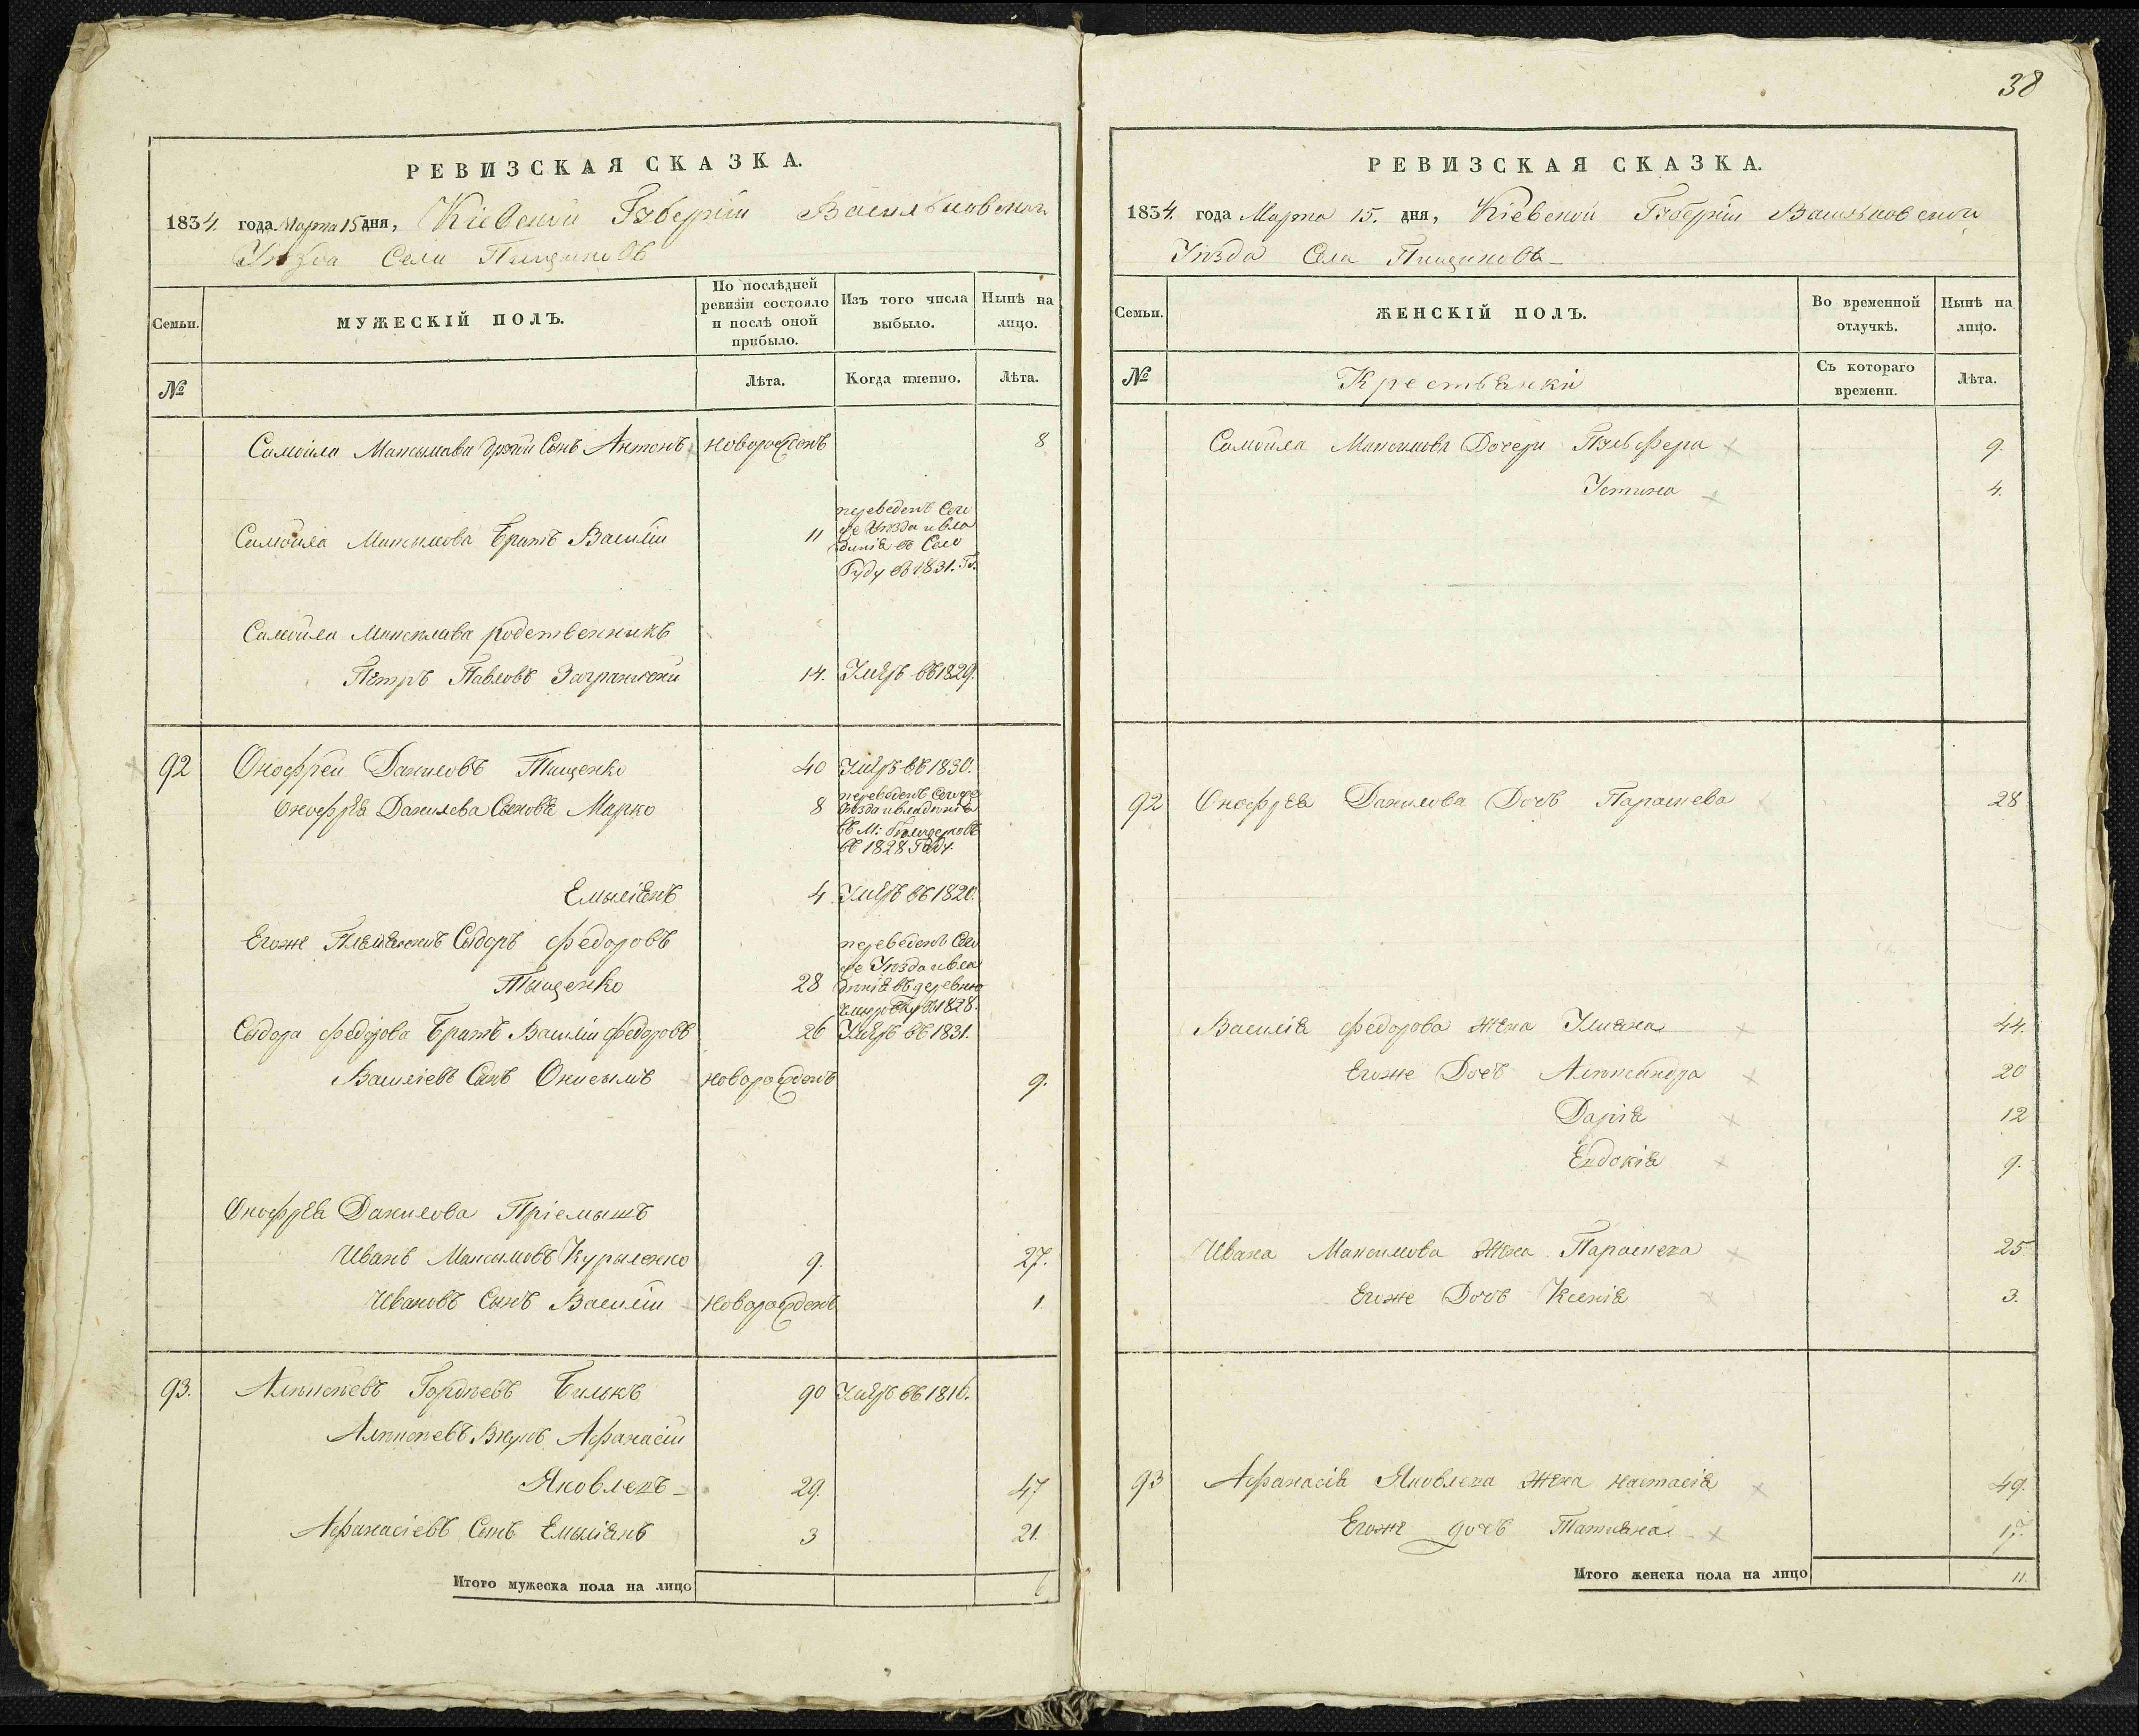 38
РЕВИЗСКАЯ СКАЗКА.
1834. года Марта 15 дня, Кіевской Губерніи Васильковскаго
Уѣзда Села Пищиковъ
Семьи.
МУЖЕСКІЙ ПОЛЪ.
По послѣдней ревизіи состояло и послѣ оной прибыло.
Изъ того числа выбыло.
Нынѣ на лицо.
№
Лѣта.
Когда именно.
Лѣта.
Самойла Максымова Сынъ Антонъ новорожденъ 8
Самойла Максимова Братъ Василій 11 переведенъ Сего
же Уѣзда и вла
денія въ Село
Руду въ 1831. Го.
Самойла Максимова родственникъ
Петръ Павловъ 14. Умеръ въ 1829.
92 Онофрей Даниловъ Тищенко 40 Умеръ въ 1830.
Онофрея Данилова Сыновья Марко 8 переведенъ Сегоже
Уѣзда и владенія
въ М:
въ 1828 Году.
Емыліянъ 4 Умеръ въ 1820.
Егоже Племянникъ Сыдоръ Федоровъ
Тыщенко 28 переведенъ Сего
же Уѣзда и вла
денія въ деревню
1828.
Сыдора Федорова Братъ Василій Федоровъ 26 Умеръ въ 1831.
Василіевъ Сынъ Онисымъ новорожденъ 9.
Онофрея Данилова Пріемышъ
Иванъ Максымовъ Курыленко 9. 27.
Ивановъ Сынъ Василій новорожденъ 1
93. Алексѣевъ Гордѣевъ 90 Умеръ въ 1816.
Алексѣевъ Внукъ Афанасій
Яковлевъ 29. 47
Афанасіевъ Сынъ Емыліянъ 3 21.
Итого мужеска пола на лицо 6
РЕВИЗСКАЯ СКАЗКА.
1834. года Марта 15. дня, Кіевской Губерніи Васильковской
Уѣзда Села Пищиковъ
Семьи.
ЖЕНСКІЙ ПОЛЪ.
Во временной отлучкѣ.
Нынѣ на лицо.
№
Крестьянки
Съ котораго времени.
Лѣта.
Самойла Максимова Дочери Пульферія 9.
Устина 4.
92 Онофрея Данилова Дочь Параскева 28
Василія Федорова Жена Ульяна 44.
Егоже Дочь Александра 20
Дарія 12
Евдокія 9.
Ивана Максимова Жена Параскева 25
Егоже Дочь Ксенія 3.
93 Афанасія Яковлева Жена Настасія 49.
Егоже дочь Татияна 17.
Итого женска пола на лицо 11.